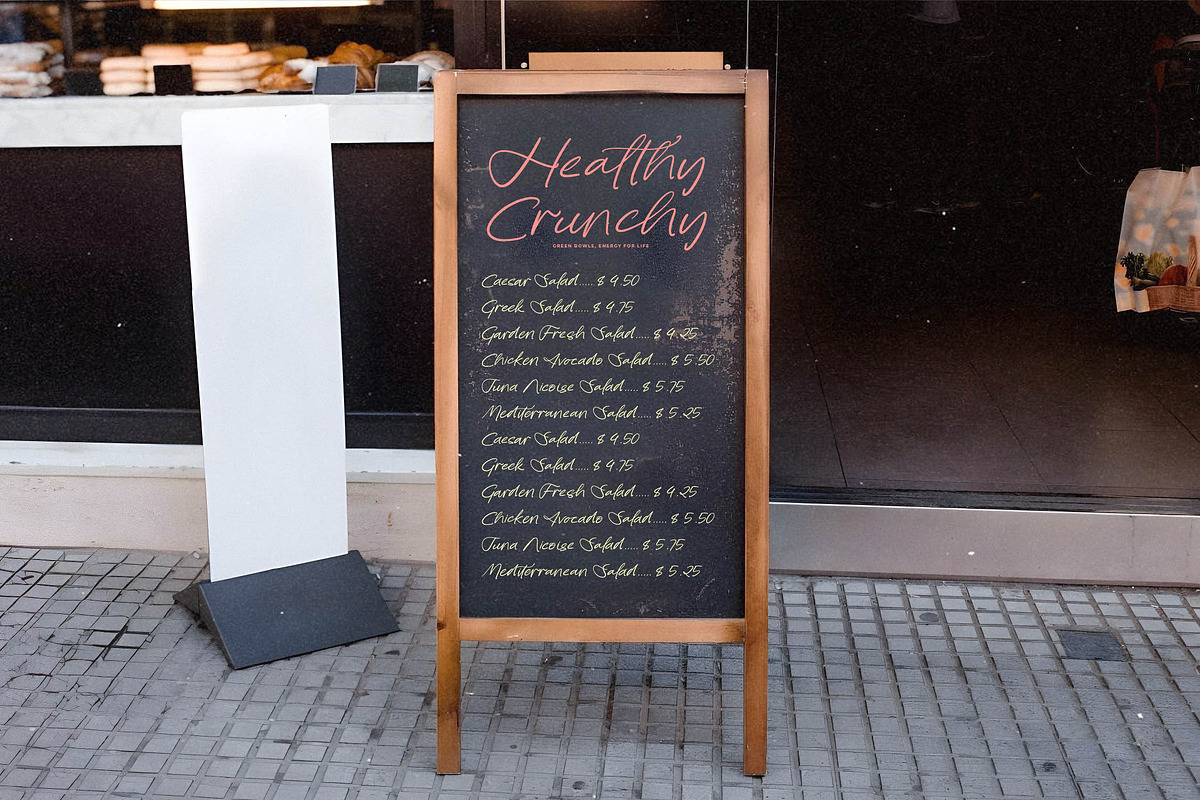 Healthy
Crunchy
GREEN BOWLS, ENERGY FOR LIFE
Caesar Salad..... $ 4.50
Greek Salad..... $ 4.75
Garden Fresh Salad..... $ 4.25
Chicken Avocado Salad..... $ 5.50
Tuna Nicoise Salad..... $ 5.75
Mediterranean Salad..... $ 5.25
Caesar Salad..... $ 4.50
Greek Salad..... $ 4.75
Garden Fresh Salad..... $ 4.25
Chicken Avocado Salad..... $ 5.50
Tuna Nicoise Salad..... $ 5.75
Mediterranean Salad..... $ 5.25